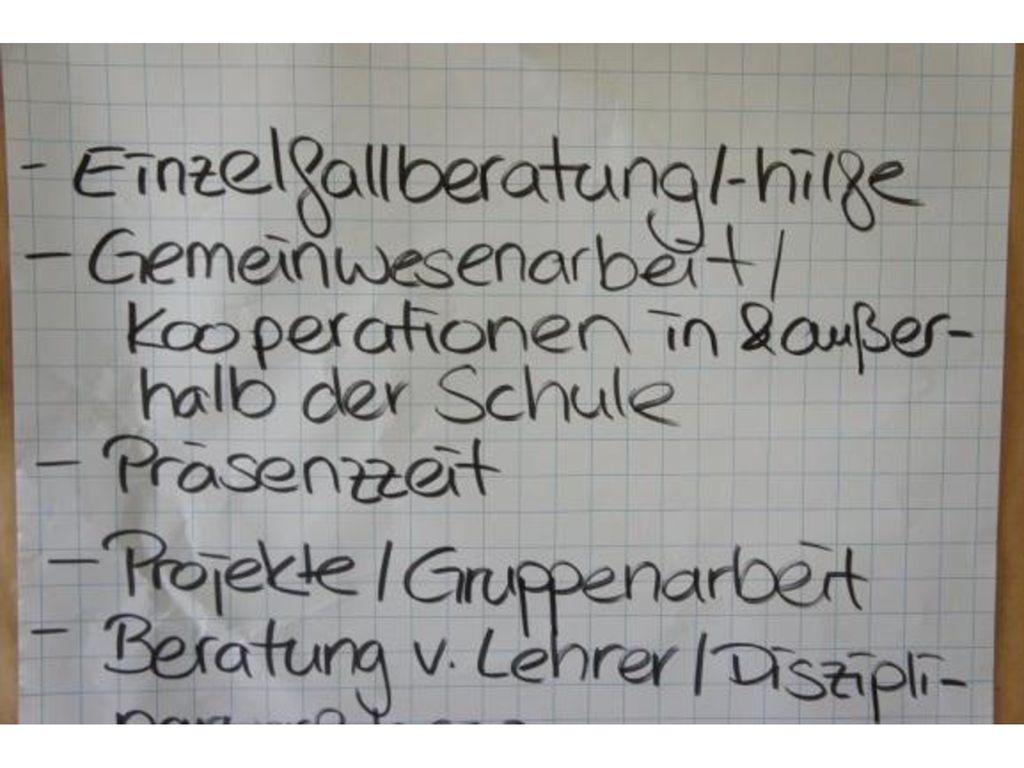 - Einzelfallberatung/-hilfe
- Gemeinwesenarbeit/
Kooperationen in & außer-
halb der Schule
- Präsenzzeit
- Projekte/Gruppenarbeit
- Beratung v. Lehrer/Diszipli-